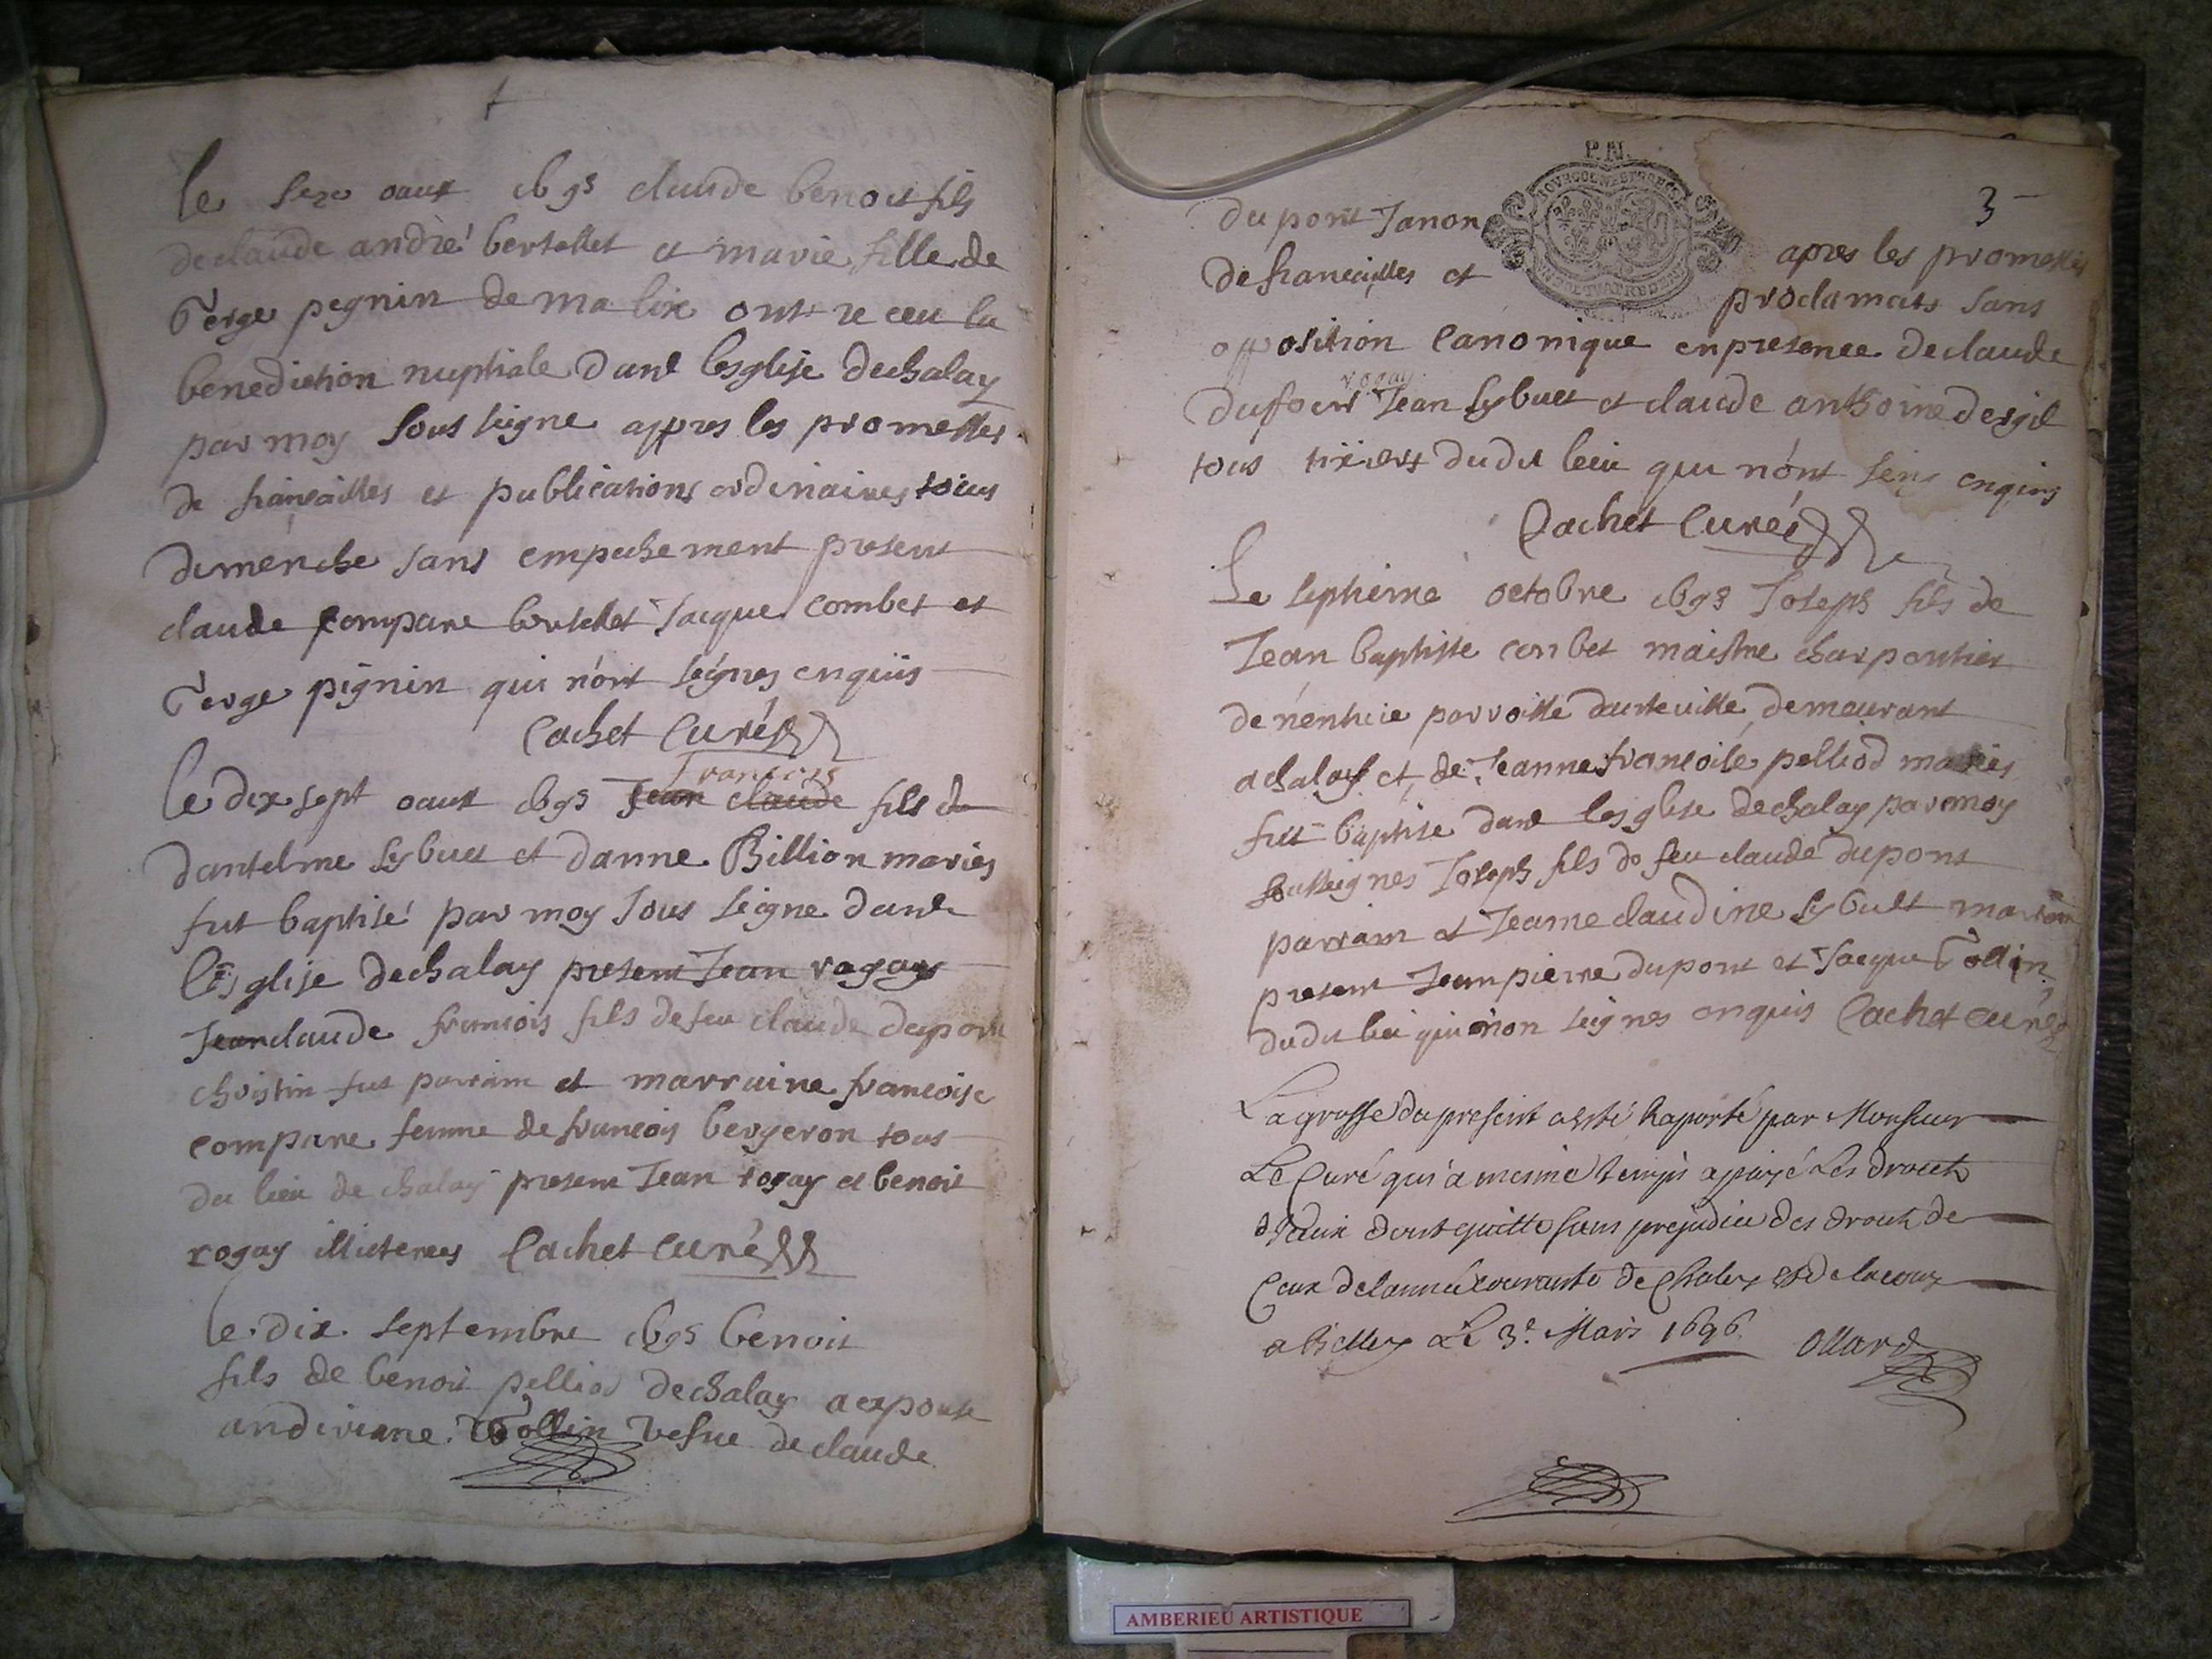 le seze oaux cbgs claude benoit fils
de claude andre bertellet et marie fille de
Gerge pegnin de ma lix ont receu la
benediction nuptiale dans lesglise de chalay
par moy sous signe appres les promesses
de fiancailles et publications ordinaires tous
dimenche sans empechement present
claude compare bertellet Jacque combet et
Gerge pignin qui n'ont signes enquis
Cachet Curé
francois
le dix sept oaux cbgs Jean claude fils de
dantelme Lybuet et danne Billion maries
fut baptisé par moy sous signe dans
lEsglise de chalay present Jean rogay
Jean claude francois fils de feu claude dupont
christin fut parrain et marraine francoise
compare femme de francois bergeron tous
du lieu de chalay present Jean rogay et benoit
rogay illiteres Cachet curé
le dix septembre cbgs benoit
fils de benoit pelliod de chalay a expouse
andrivane Gollin vefue de claude
P. N.
3
du pont Janon apres les promesses
de fiancailles et proclamats sans
opposition canonique en presence de claude
rogay
duffour Jean Lybuet et claude anthoine
tous tixiers dudit lieu qui n'ont signe enquis
Cachet Curé
Le septieme octobre cbgs Joseph fils de
Jean baptiste combet maistre charpentier
de nentuie parroisse dauteville demeurant
a chalay et de Jeanne francoise pelliod maries
fut baptise dans lesglise de chalay par moy
soussignes Joseph fils de feu claude dupont
parrain et Jeanne claudine Lybuet marraine
present Jean pierre dupont et Jacque Gollin
dudit lieu qui n'on signes enquis Cachet curé
La grosse du present a esté raporté par Monsieur
Le Curé qui a mesme temps a payé Les droits
diceux dont quitte sans prejudice des droits de
Ceux de lannée courante de Chaley et de la cour
a Belley Le 3e. Mars 1696. Ollard
AMBERIEU ARTISTIQUE